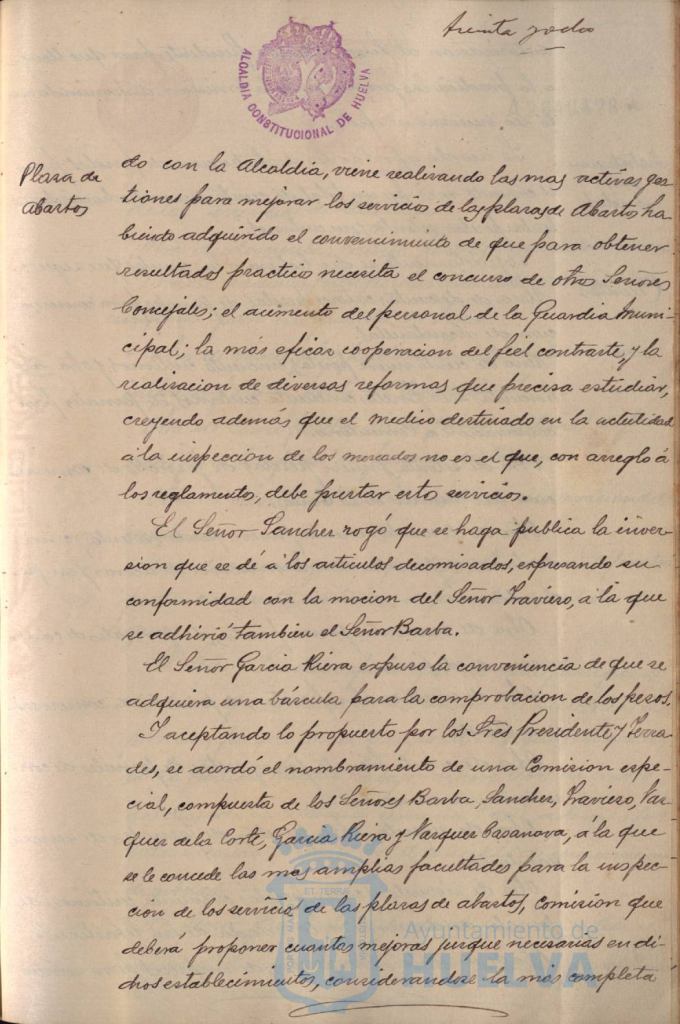 treinta y dos
ALCALDIA CONSTITUCIONAL DE HUELVA
Plaza de
abastos
do con la Alcaldia, viene realizando las mas activas ges
tiones para mejorar los servicios de las plazas de Abastos ha
biendo adquirido el convencimiento de que para obtener
resultados practicos necesita el concurso de otros Señores
Concejales; el aumento del personal de la Guardia Muni
cipal; la más eficaz cooperacion del fiel contraste, y la
realizacion de diversas reformas que precisa estudiar,
creyendo además que el medico destinado en la actualidad
á la inspeccion de los mercados no es el que, con arreglo á
los reglamentos, debe prestar estos servicios.
El Señor Sanchez rogó que se haga publica la inver-
sion que se dé á los articulos decomisados, expresando su
conformidad con la mocion del Señor Travieso, á la que
se adhirió tambien el Señor Barba.
El Señor Garcia Riera expuso la conveniencia de que se
adquiera una báscula para la comprobacion de los pesos.
Y aceptando lo propuesto por los Sres Presidente y Terra
des, se acordó el nombramiento de una Comision espe-
cial, compuesta de los Señores Barba, Sanchez, Travieso, Vaz
quez de la Corte, Garcia Riera y Vazquez Casanova, á la que
se le concede las mas amplias facultades para la inspec-
cion de los servicios de las plazas de abastos, Comision que
deberá proponer cuantas mejoras juzgue necesarias en di-
chos establecimientos, considerandose la más completa
Ayuntamiento de
HUELVA